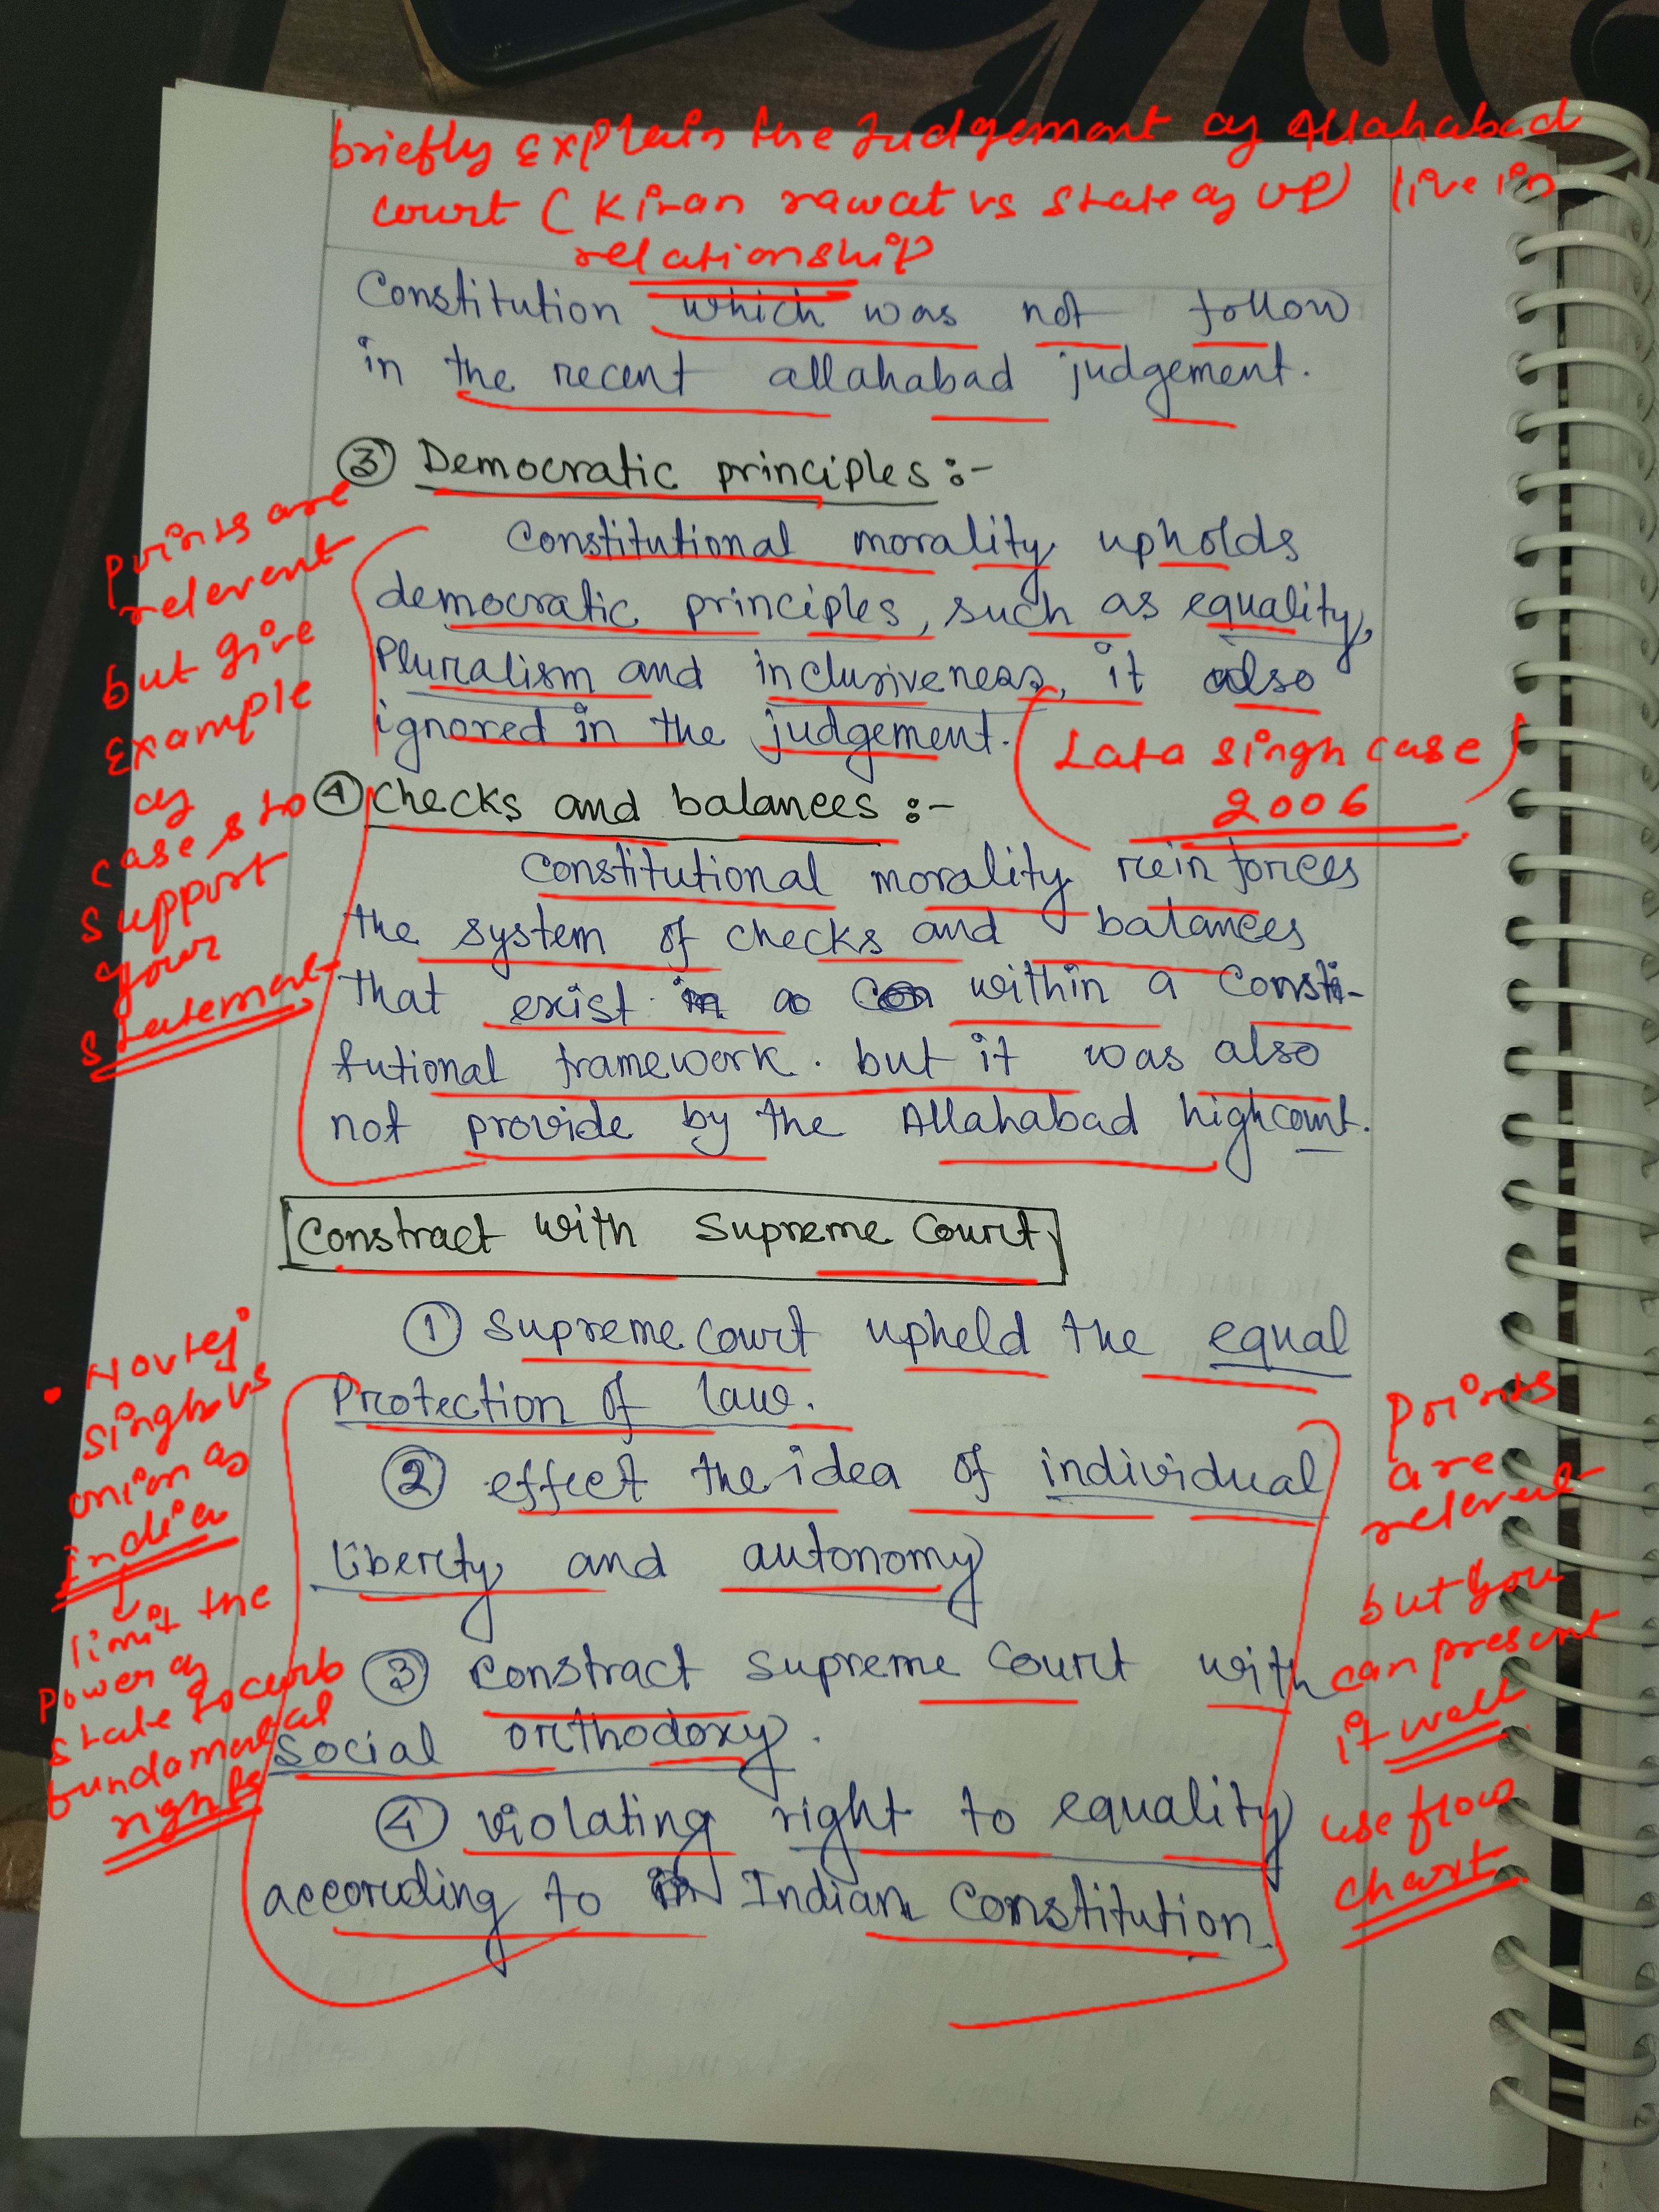 briefly explain the Judgement of Allahabad
court (Kiran rawat vs state of UP) live in
relationship
Constitution which was not follow
in the recent allahabad judgement.
③ Democratic principles :-
Constitutional morality upholds
democratic principles, such as equality,
Pluralism and inclusiveness, it also
ignored in the judgement.
(Lata Singh case)
2006
points are
relevent
but give
Example
of
cases to
support
your
statement
④ checks and balances :-
Constitutional morality reinforces
the system of checks and balances
that exist in a con within a Consti-
tutional framework. but it was also
not provide by the Allahabad highcourt.
Constract with Supreme Court
① Supreme court upheld the equal
Protection of law.
② effect the idea of individual
liberty and autonomy
③ Constract supreme court with
social orthodoxy.
④ violating right to equality
according to in Indian Constitution.
• Novtej
singh vs
onion of
India
↓
limit the
power of
state to curb
fundamental
rights
Points
are
relevent
but you
can present
it well
use flow
chart